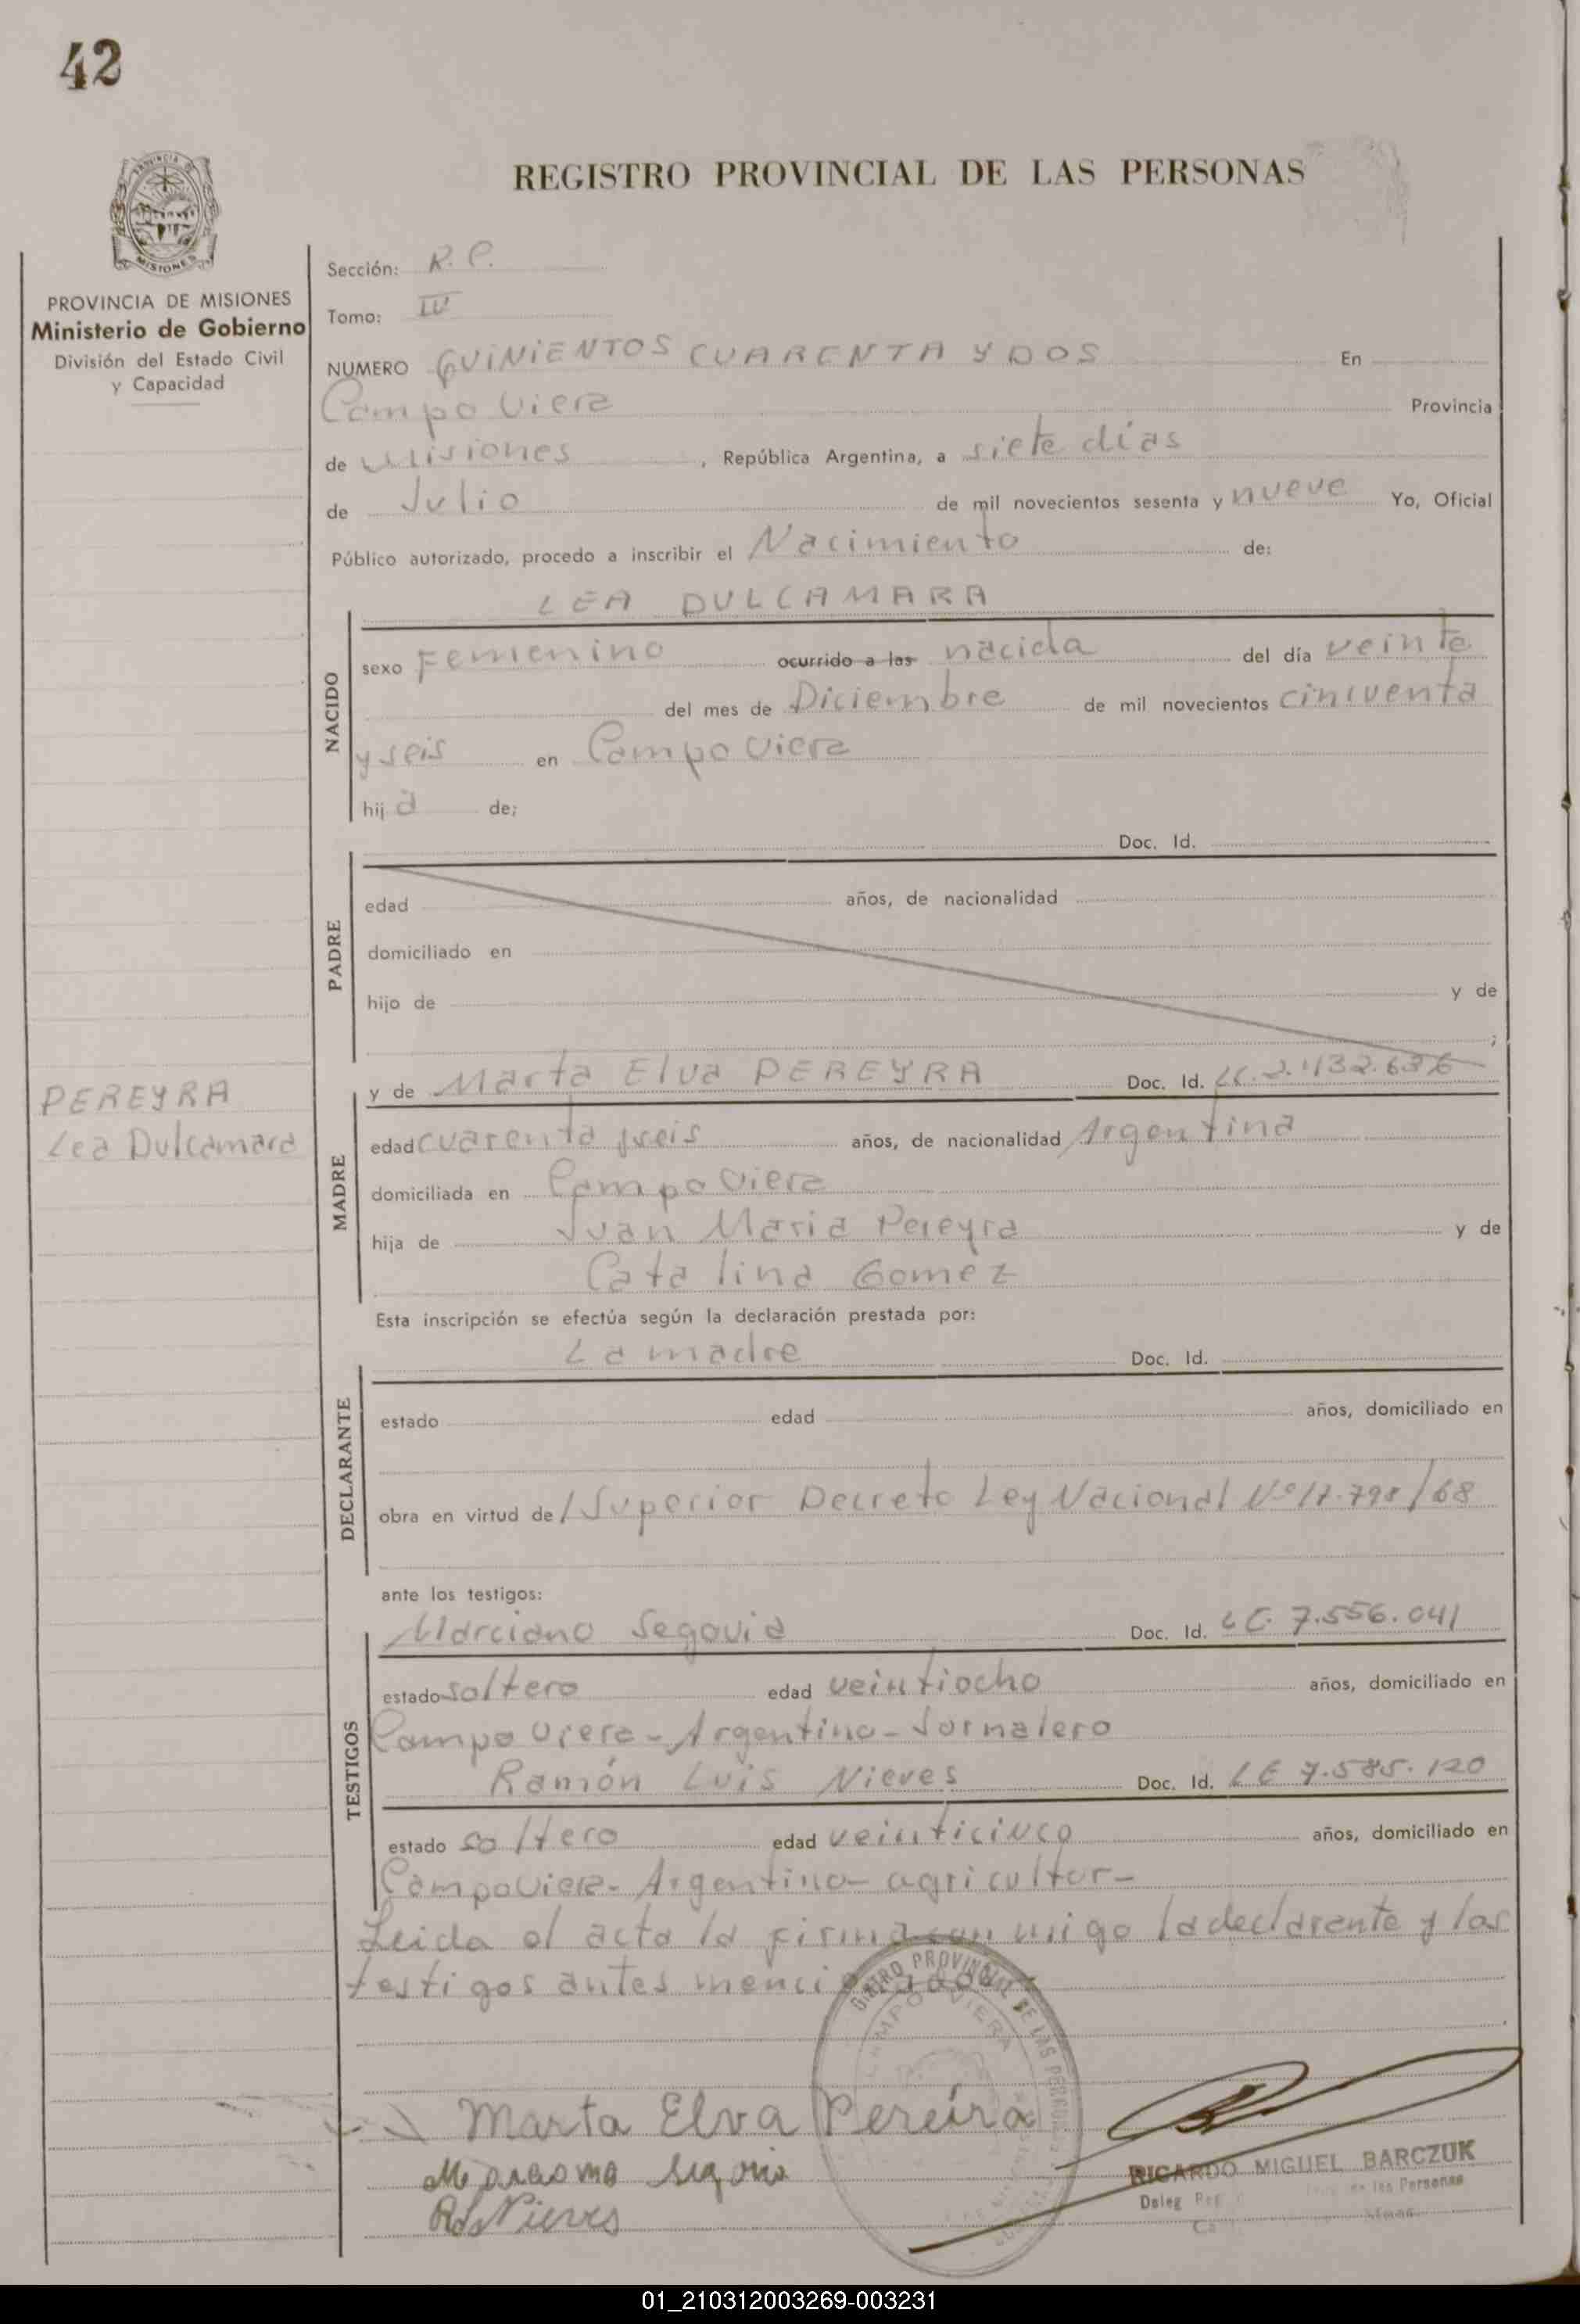 42
REGISTRO PROVINCIAL DE LAS PERSONAS
PROVINCIA DE MISIONES
PROVINCIA DE MISIONES
Ministerio de Gobierno
División del Estado Civil
y Capacidad
Sección: R. P.
Tomo: IV
NUMERO QUINIENTOS CUARENTA Y DOS En
Campo Viera Provincia
de Misiones, República Argentina, a siete días
de Julio de mil novecientos sesenta y nueve Yo, Oficial
Público autorizado, procedo a inscribir el Nacimiento de:
LEA DULCAMARA
NACIDO
sexo Femenino ocurrido a las nacida del día veinte
del mes de Diciembre de mil novecientos cincuenta
y seis en Campo Viera
hija de;
Doc. Id.
PADRE
edad años, de nacionalidad
domiciliado en
hijo de y de
;
PEREYRA
Lea Dulcamara
y de Marta Elva PEREYRA Doc. Id. LC. 2.432.636
MADRE
edad cuarenta y seis años, de nacionalidad Argentina
domiciliada en Campo Viera
hija de Juan Maria Pereyra y de
Catalina Gomez
Esta inscripción se efectúa según la declaración prestada por:
La madre Doc. Id.
DECLARANTE
estado edad años, domiciliado en
obra en virtud de / Superior Decreto Ley Nacional Nº 17.798/68
ante los testigos:
Marciano Segovia Doc. Id. LE. 7.556.041
TESTIGOS
estado soltero edad veintiocho años, domiciliado en
Campo Viera - Argentino - Jornalero
Ramón Luis Nieves Doc. Id. LE 7.585.120
estado soltero edad veinticinco años, domiciliado en
Campo Viera - Argentino - agricultor -
Leida el acta la firma con migo la declarante y los
testigos antes mencionados
Marta Elva Pereira
RL Nieves
REGISTRO PROVINCIAL DE LAS PERSONAS
CAMPO VIERA
RICARDO MIGUEL BARCZUK
Deleg de las Personas
01_210312003269-003231